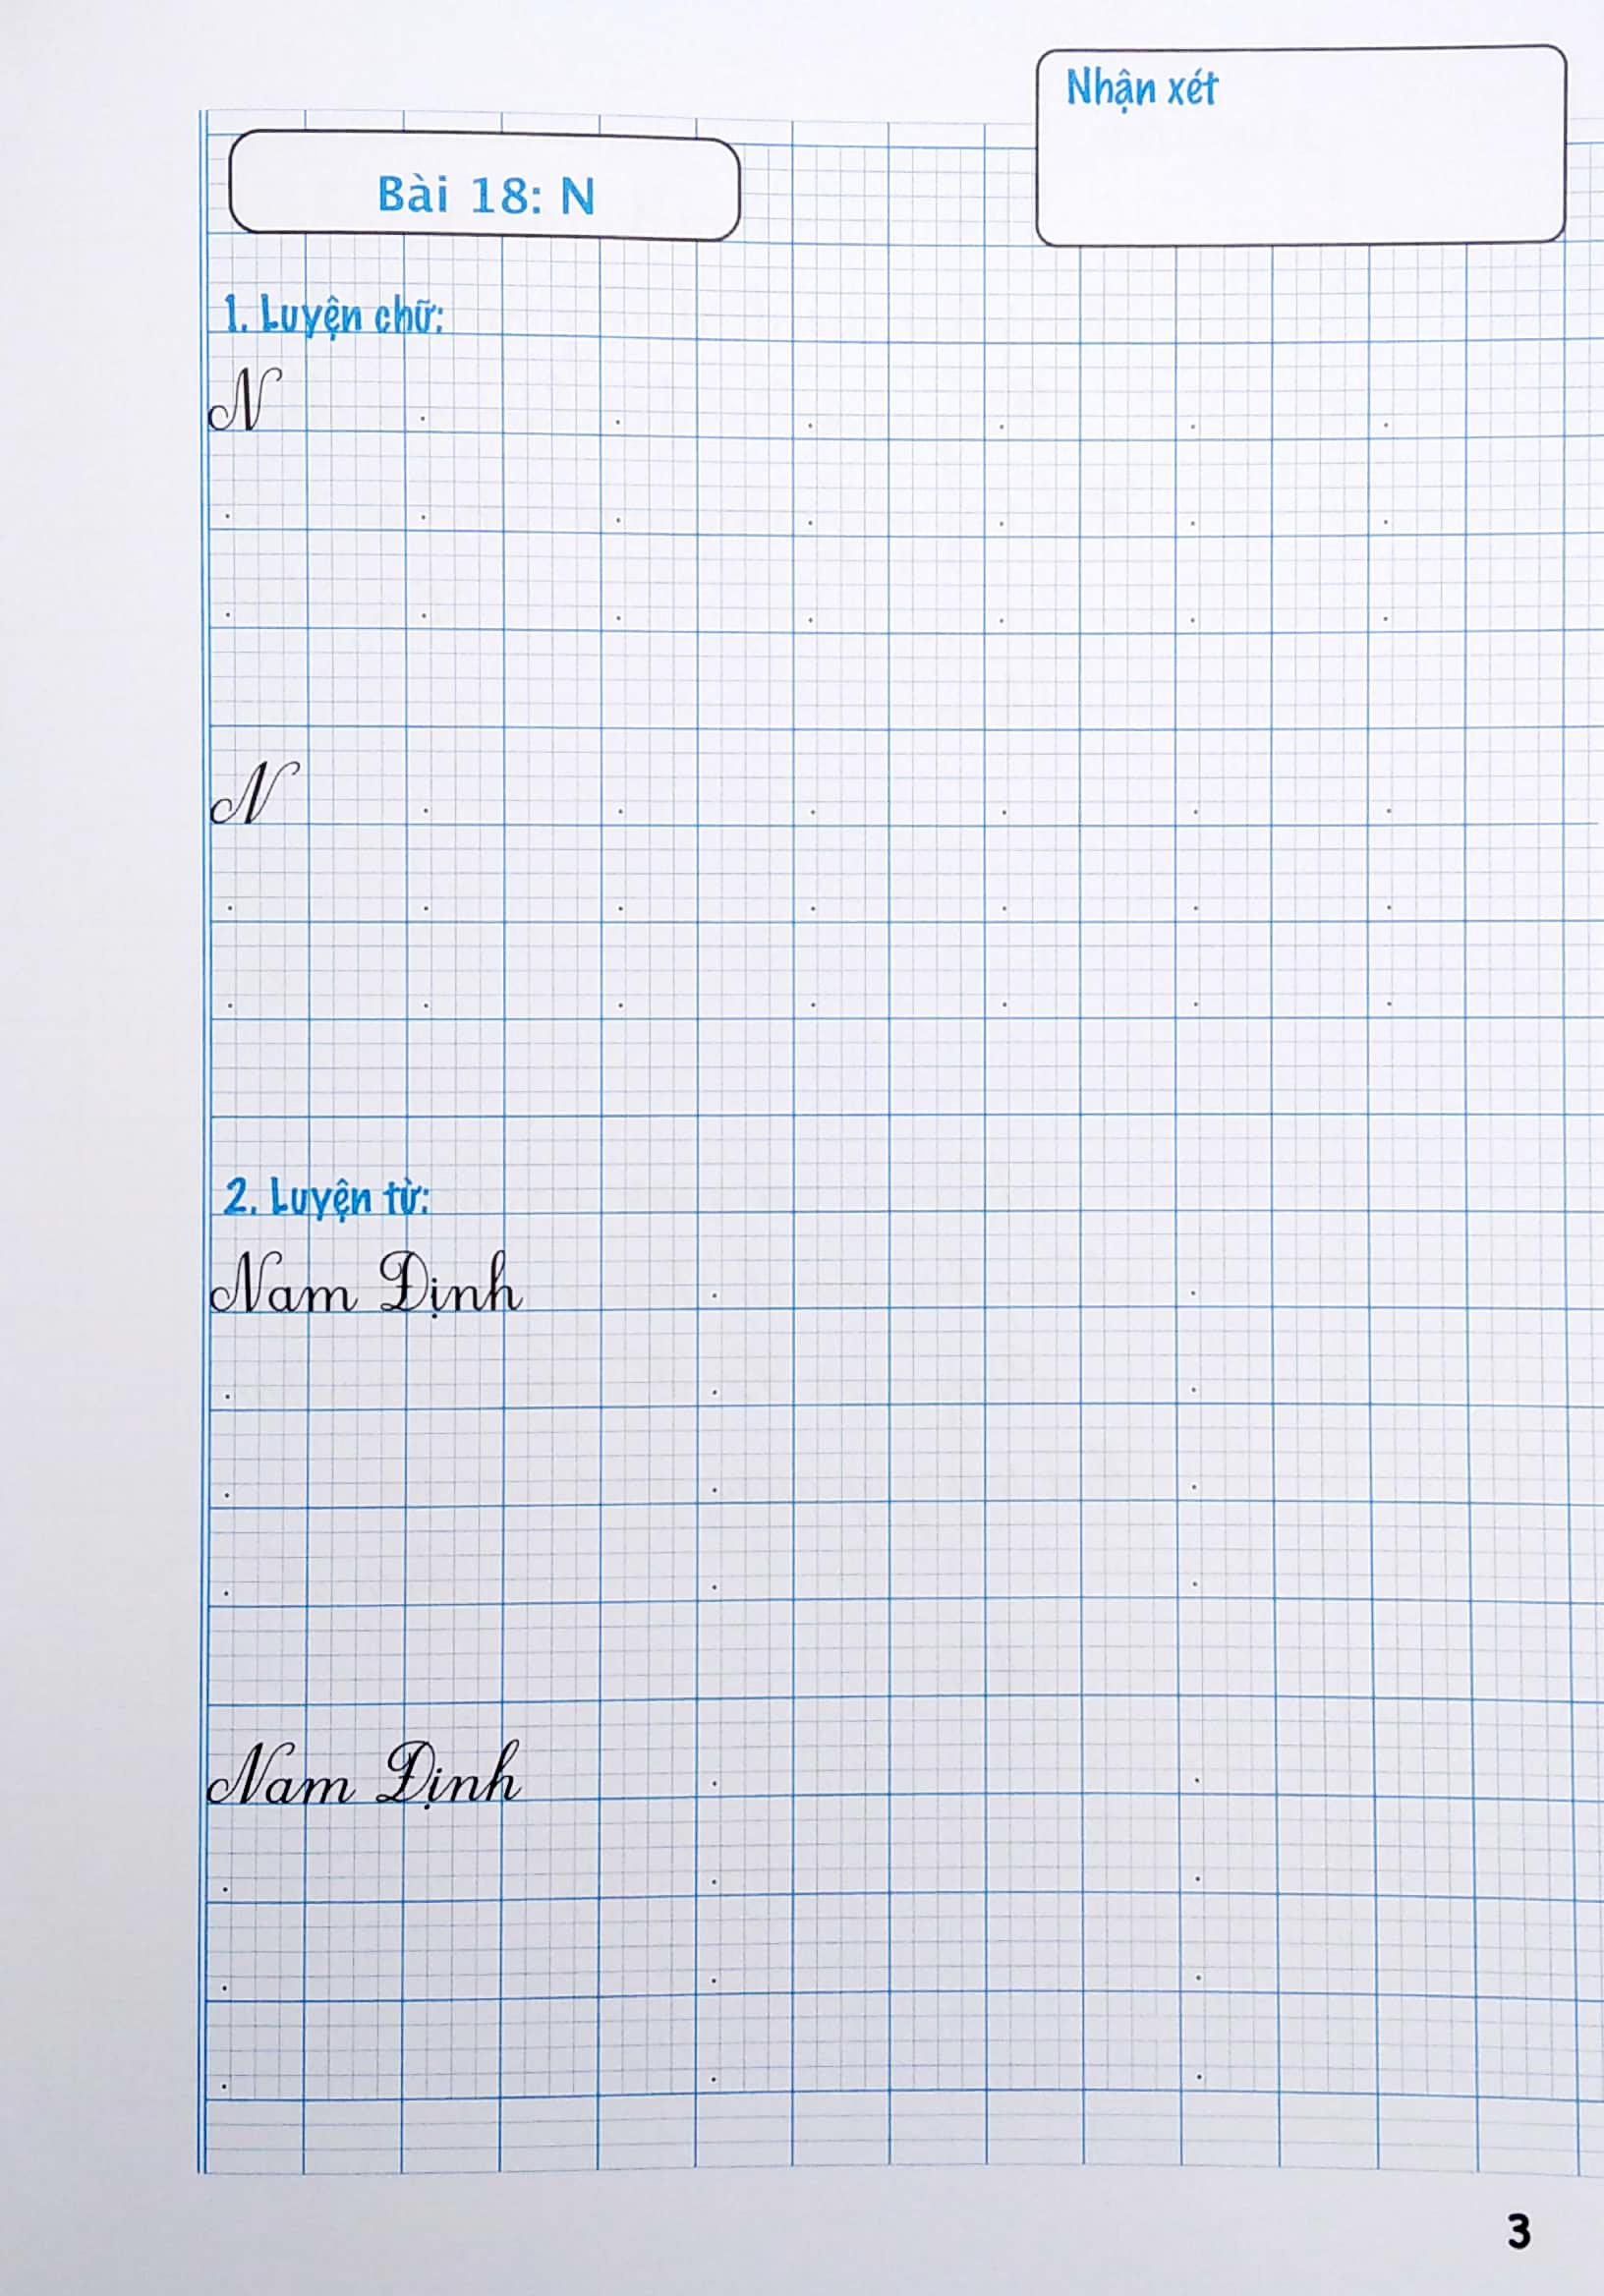 Nhận xét
Bài 18: N
1. Luyện chữ:
N
N
2. Luyện từ:
Nam Định
Nam Định
3